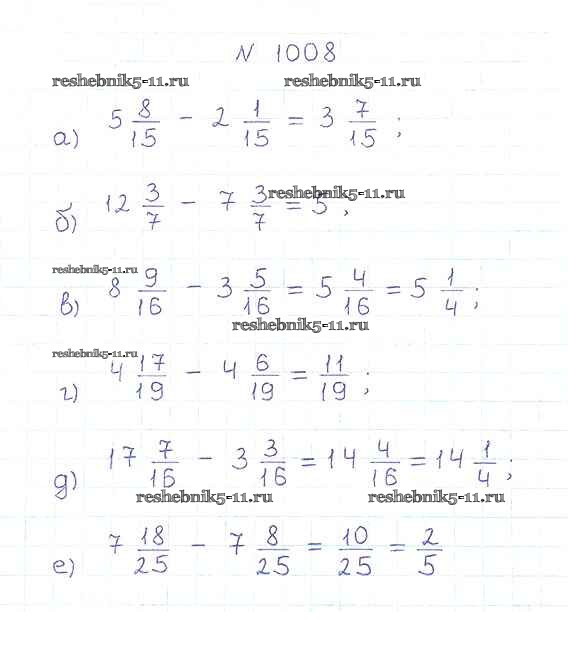 N 1008
reshebnik5-11.ru reshebnik5-11.ru
а) 5 8/15 - 2 1/15 = 3 7/15 ;
reshebnik5-11.ru
б) 12 3/7 - 7 3/7 = 5 ,
reshebnik5-11.ru
в) 8 9/16 - 3 5/16 = 5 4/16 = 5 1/4 ;
reshebnik5-11.ru
reshebnik5-11.ru
г) 4 17/19 - 4 6/19 = 11/19 ;
д) 17 7/16 - 3 3/16 = 14 4/16 = 14 1/4 ;
reshebnik5-11.ru reshebnik5-11.ru
е) 7 18/25 - 7 8/25 = 10/25 = 2/5